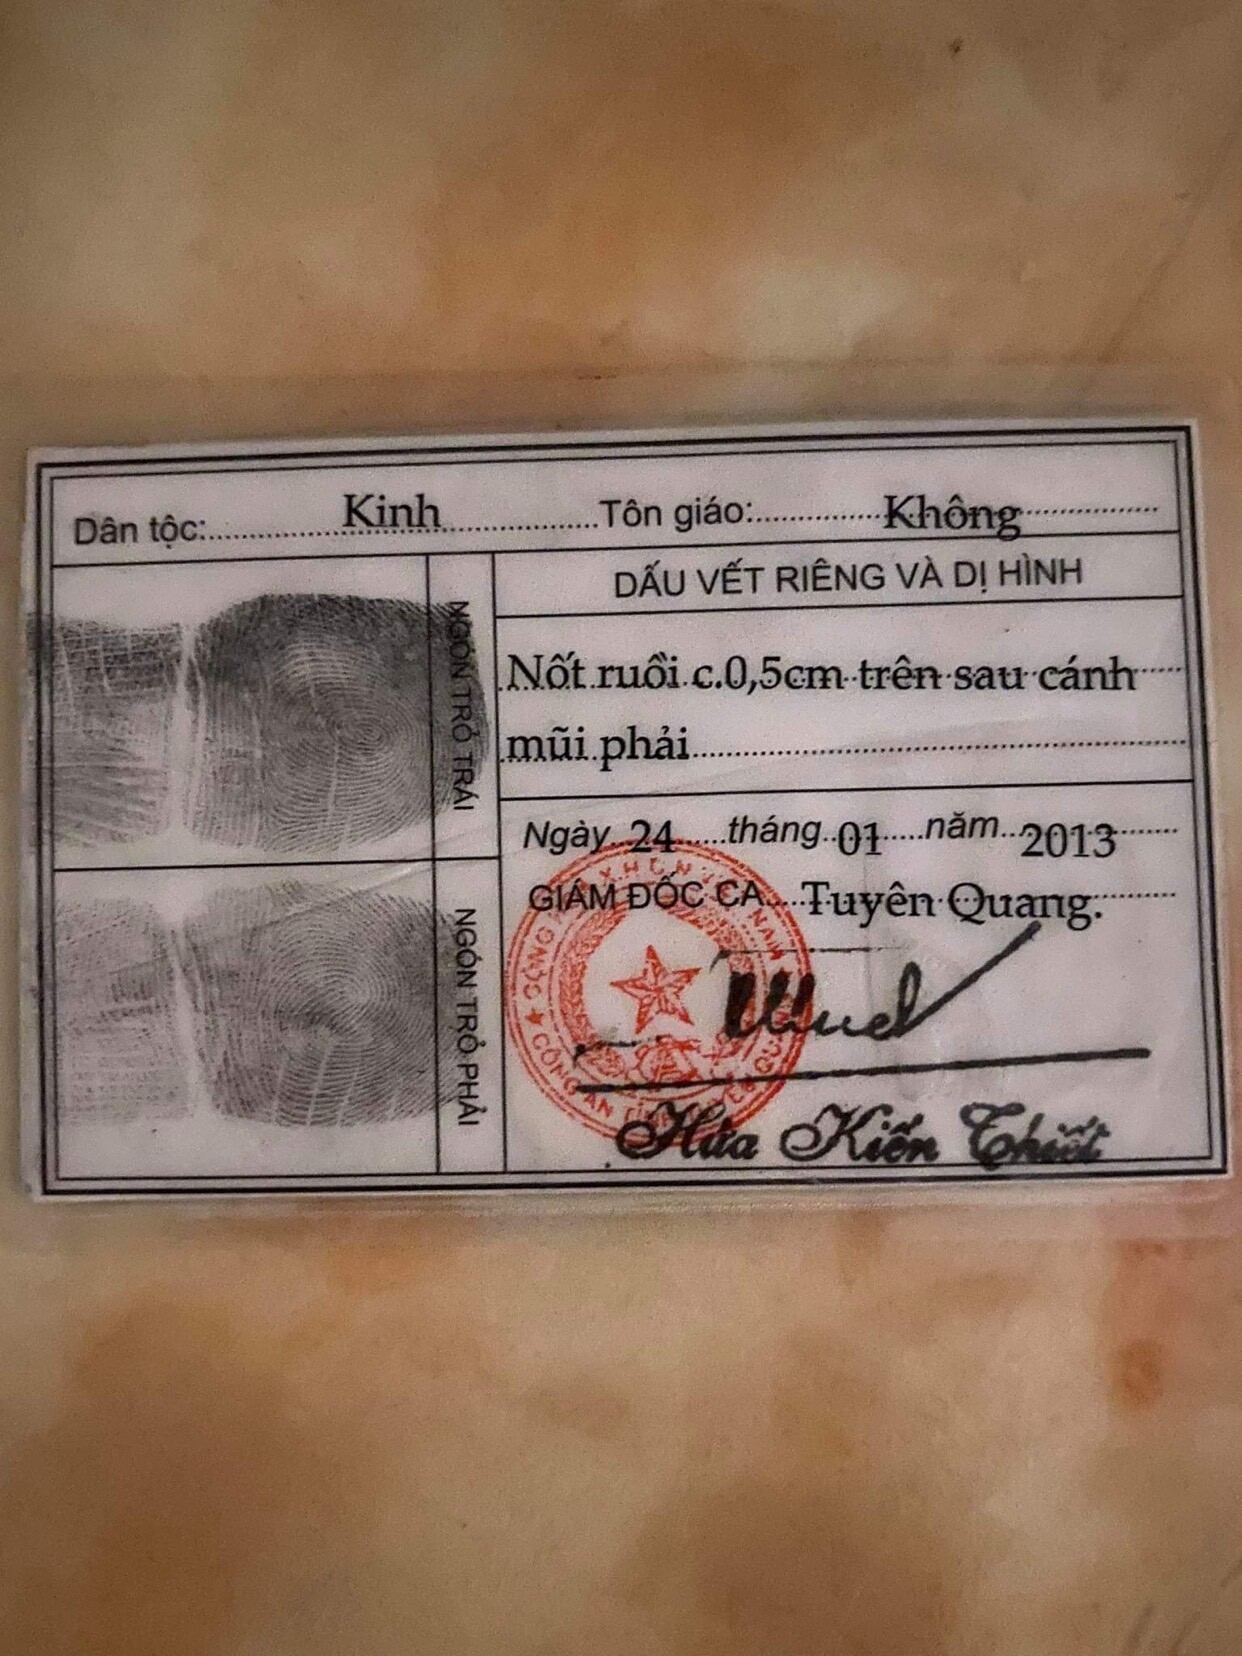 Dân tộc: Kinh Tôn giáo: Không
NGÓN TRỎ TRÁI
NGÓN TRỎ PHẢI
DẤU VẾT RIÊNG VÀ DỊ HÌNH
Nốt ruồi c.0,5cm trên sau cánh
mũi phải
Ngày 24 tháng 01 năm 2013
GIÁM ĐỐC CA Tuyên Quang.
CÔNG AN TỈNH
Hứa Kiến Thiết